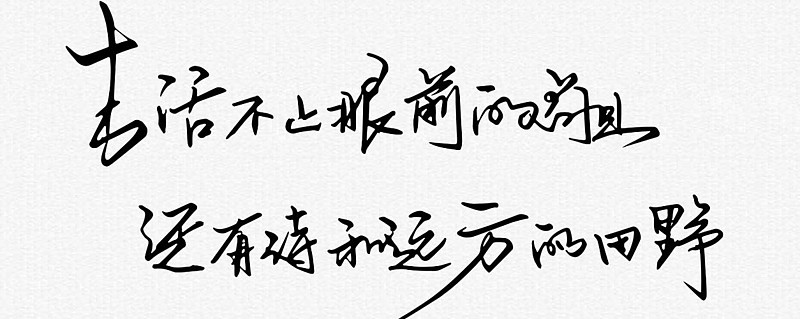 生活不止眼前的苟且
还有诗和远方的田野